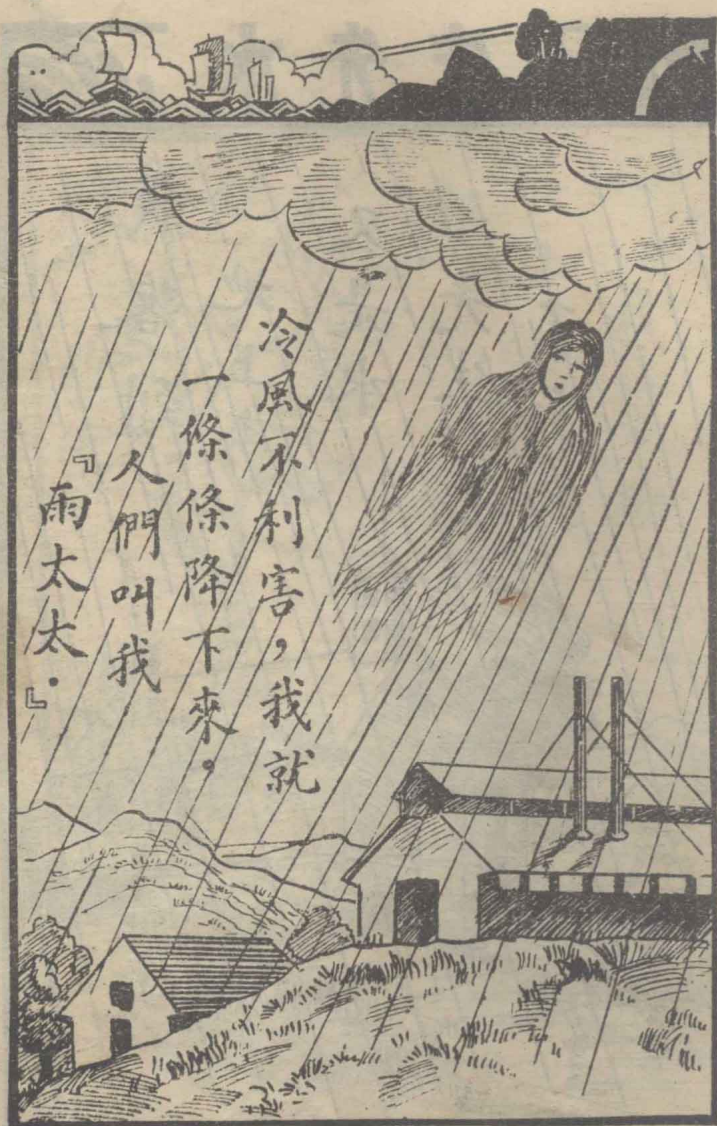 冷風不利害，我就
一條條降下來。
人們叫我
『雨太太．』